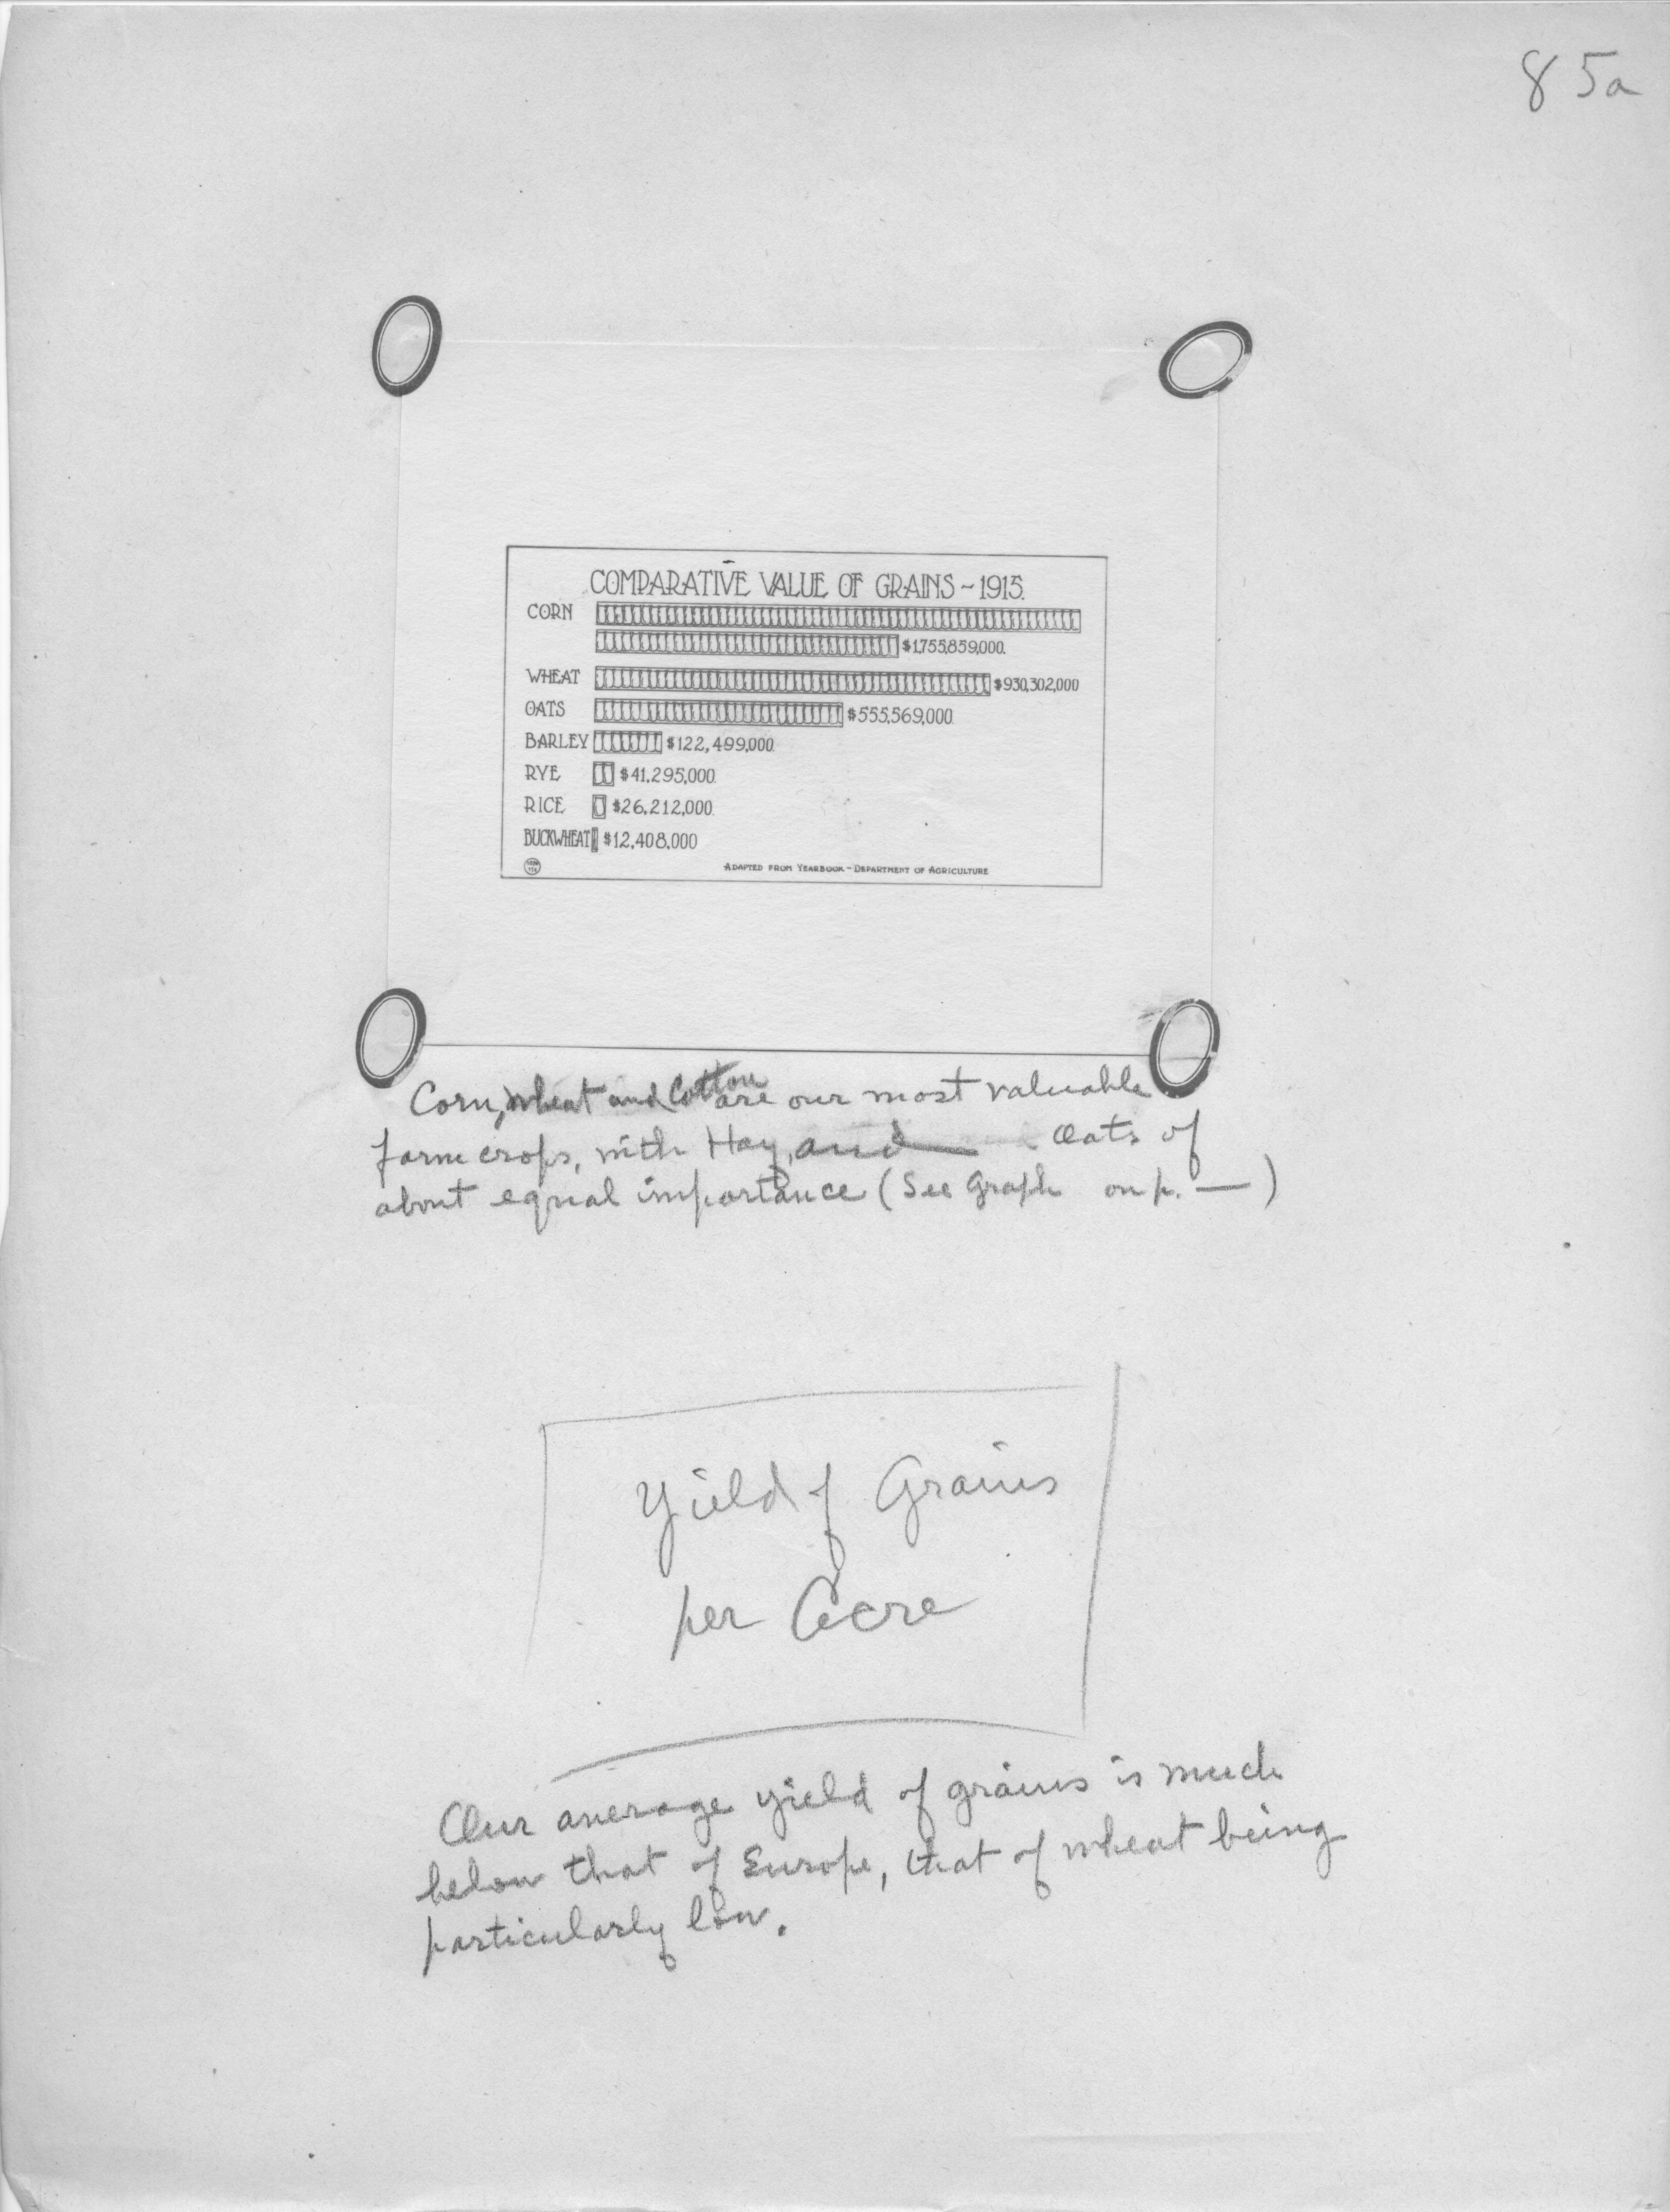 85a
COMPARATIVE VALUE OF GRAINS ~ 1915.
CORN
$1,755,859,000.
WHEAT $930,302,000
OATS $555,569,000
BARLEY $122,499,000
RYE $41,295,000.
RICE $26,212,000
BUCKWHEAT $12,408,000
ADAPTED FROM YEARBOOK - DEPARTMENT OF AGRICULTURE
Corn, Wheat and Cotton are our most valuable
farm crops, with Hay, and Oats of
about equal importance (See Graph on p. — )
Yield of Grains
per Acre
Our average yield of grains is much
below that of Europe, that of wheat being
particularly low.